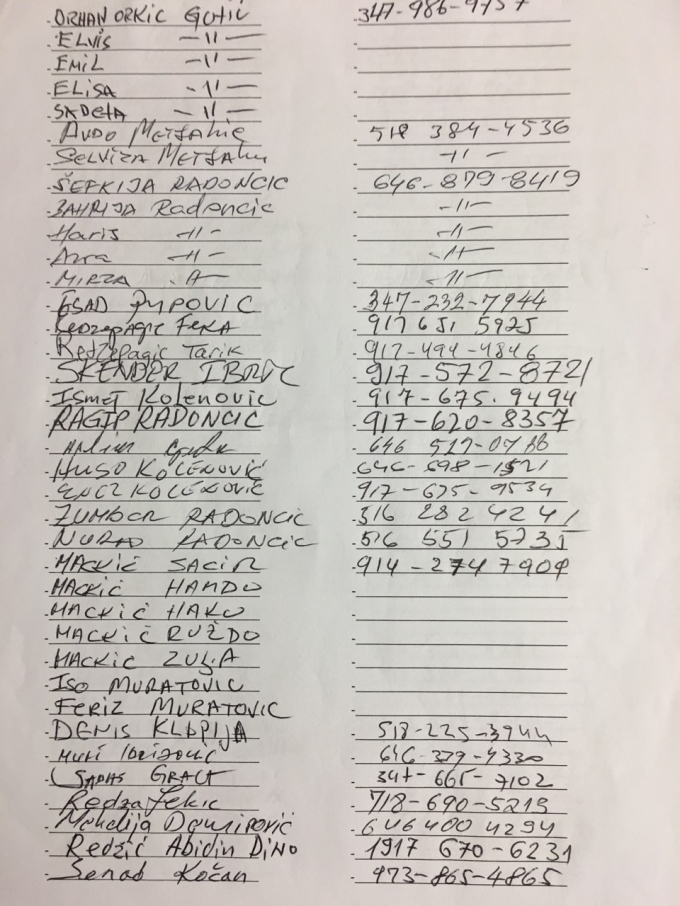 ORHAN ORKIC GUTIC 347-986-9757
ELVIS -11-
EMIL -11-
ELISA -11-
SADETA -11-
AVDO 518 384-4536
SELVIZA -11-
ŠEFKIJA RADONCIC 646-879-8419
BAHRIJA Radoncic -11-
Haris -11- -11-
Azra -11- -11-
MIRZA -11- -11-
ESAD 347-232-7944
Redzepagic FeKA 917 651 5925
Redzepagic Tarik 917-494-4846
SKENDER 917-572-8721
Ismet Kolenovic 917-675.9494
RAGIP RADONCIC 917-620-8357
646
HUSO KOLENOVIĆ 646-598-1521
KOLENOVIĆ 917-675-9534
ZUMBER RADONCIC 516 282 4241
NURAD RADONCIC 516 551 5735
MACKIĆ SACIR 914-274 7909
MACKIĆ HAMDO
MACKIĆ HAKO
MACKIĆ RUŽDO
MACKIC
ISO MURATOVIC
FERIZ MURATOVIC
DENIS KLAPIJA 518-225-3944
646-379-4330
347-665-7102
718-690-5219
646 400 4294
Redžić Abidin DiNO 1917 670-6231
Senad Kočan 973-865-4865